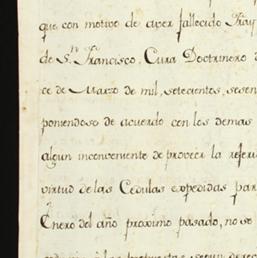 que con motivo de aver fallecido Fray
de Sn. Francisco, Cura Doctrinero d
ce de Marzo de mil, setecientos, sesen
poniendose de acuerdo con los demas
algun inconveniente de proveer la referi
virtud de las Cedulas expedidas par
Enero del año proximo pasado, no se